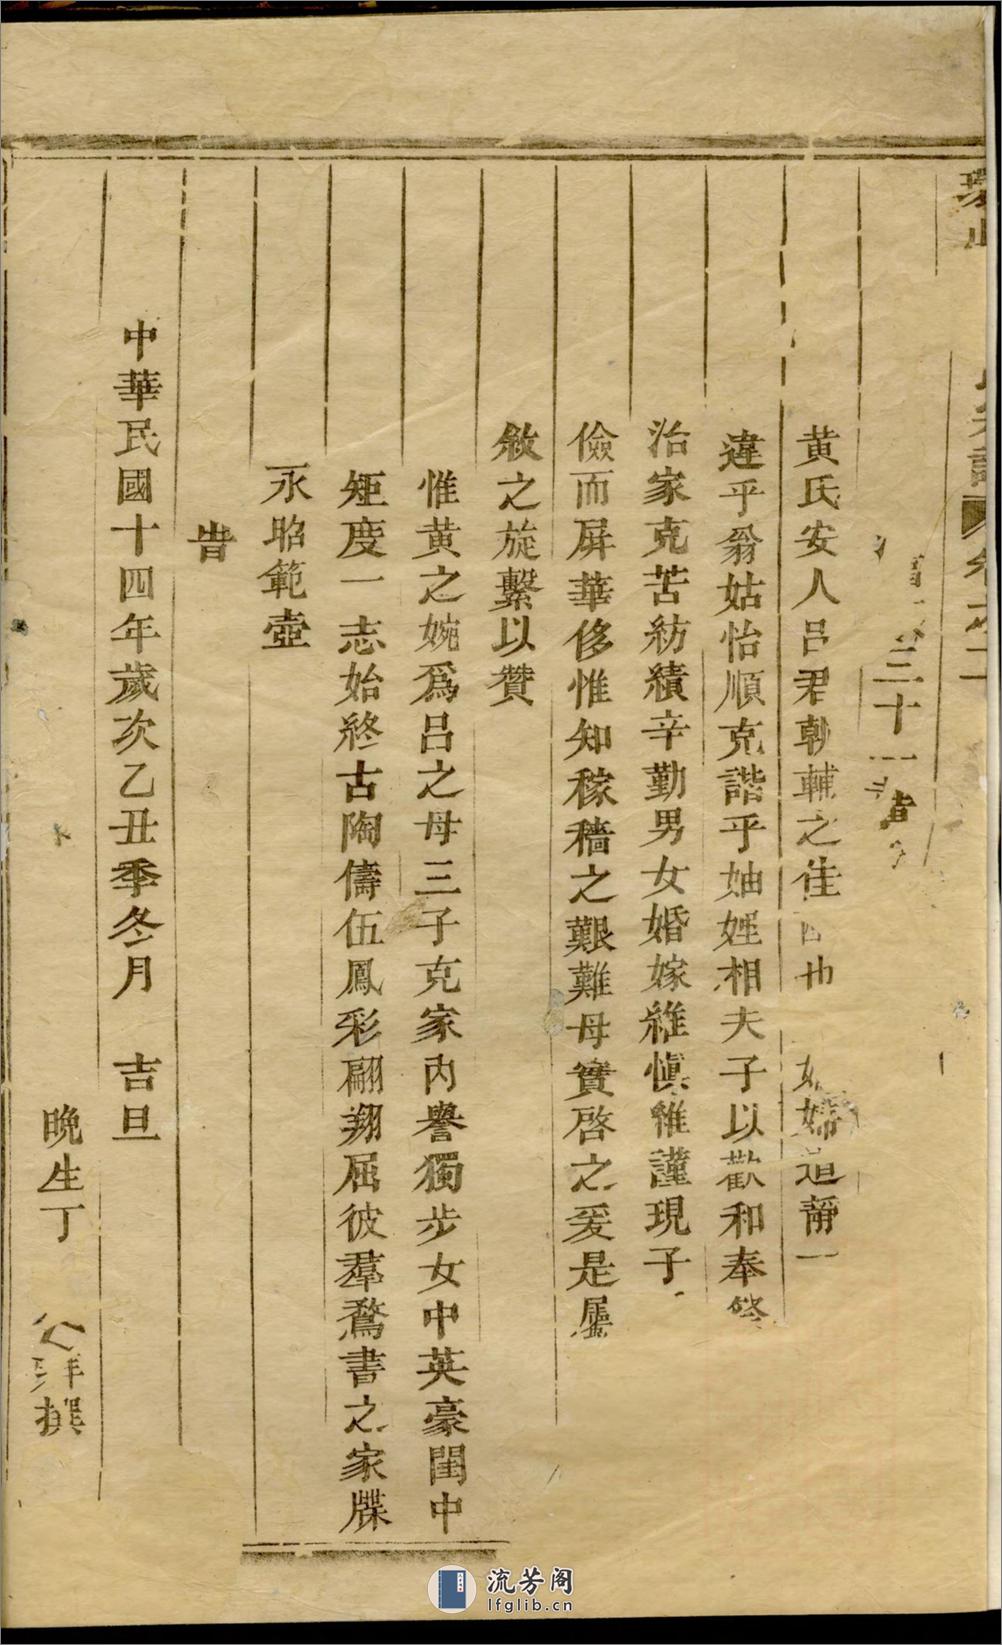 三十一
黄氏安人吕君朝輔之佳也婦道靜一
違乎翁姑怡順克諧乎妯娌相夫子以歡和奉
治家克苦紡績辛勤男女婚嫁維慎維謹現子
儉而屏華侈惟知稼穡之艱難母實啓之爰是屬
敘之旋繫以贊
惟黄之婉爲吕之母三子克家內譽獨步女中英豪閨中
矩度一志始終古陶儔伍鳳彩翩翔屈彼羣鶩書之家牒
永昭範壼
旹
中華民國十四年歲次乙丑季冬月 吉旦
晚生丁 撰
流芳阁
lfglib.cn